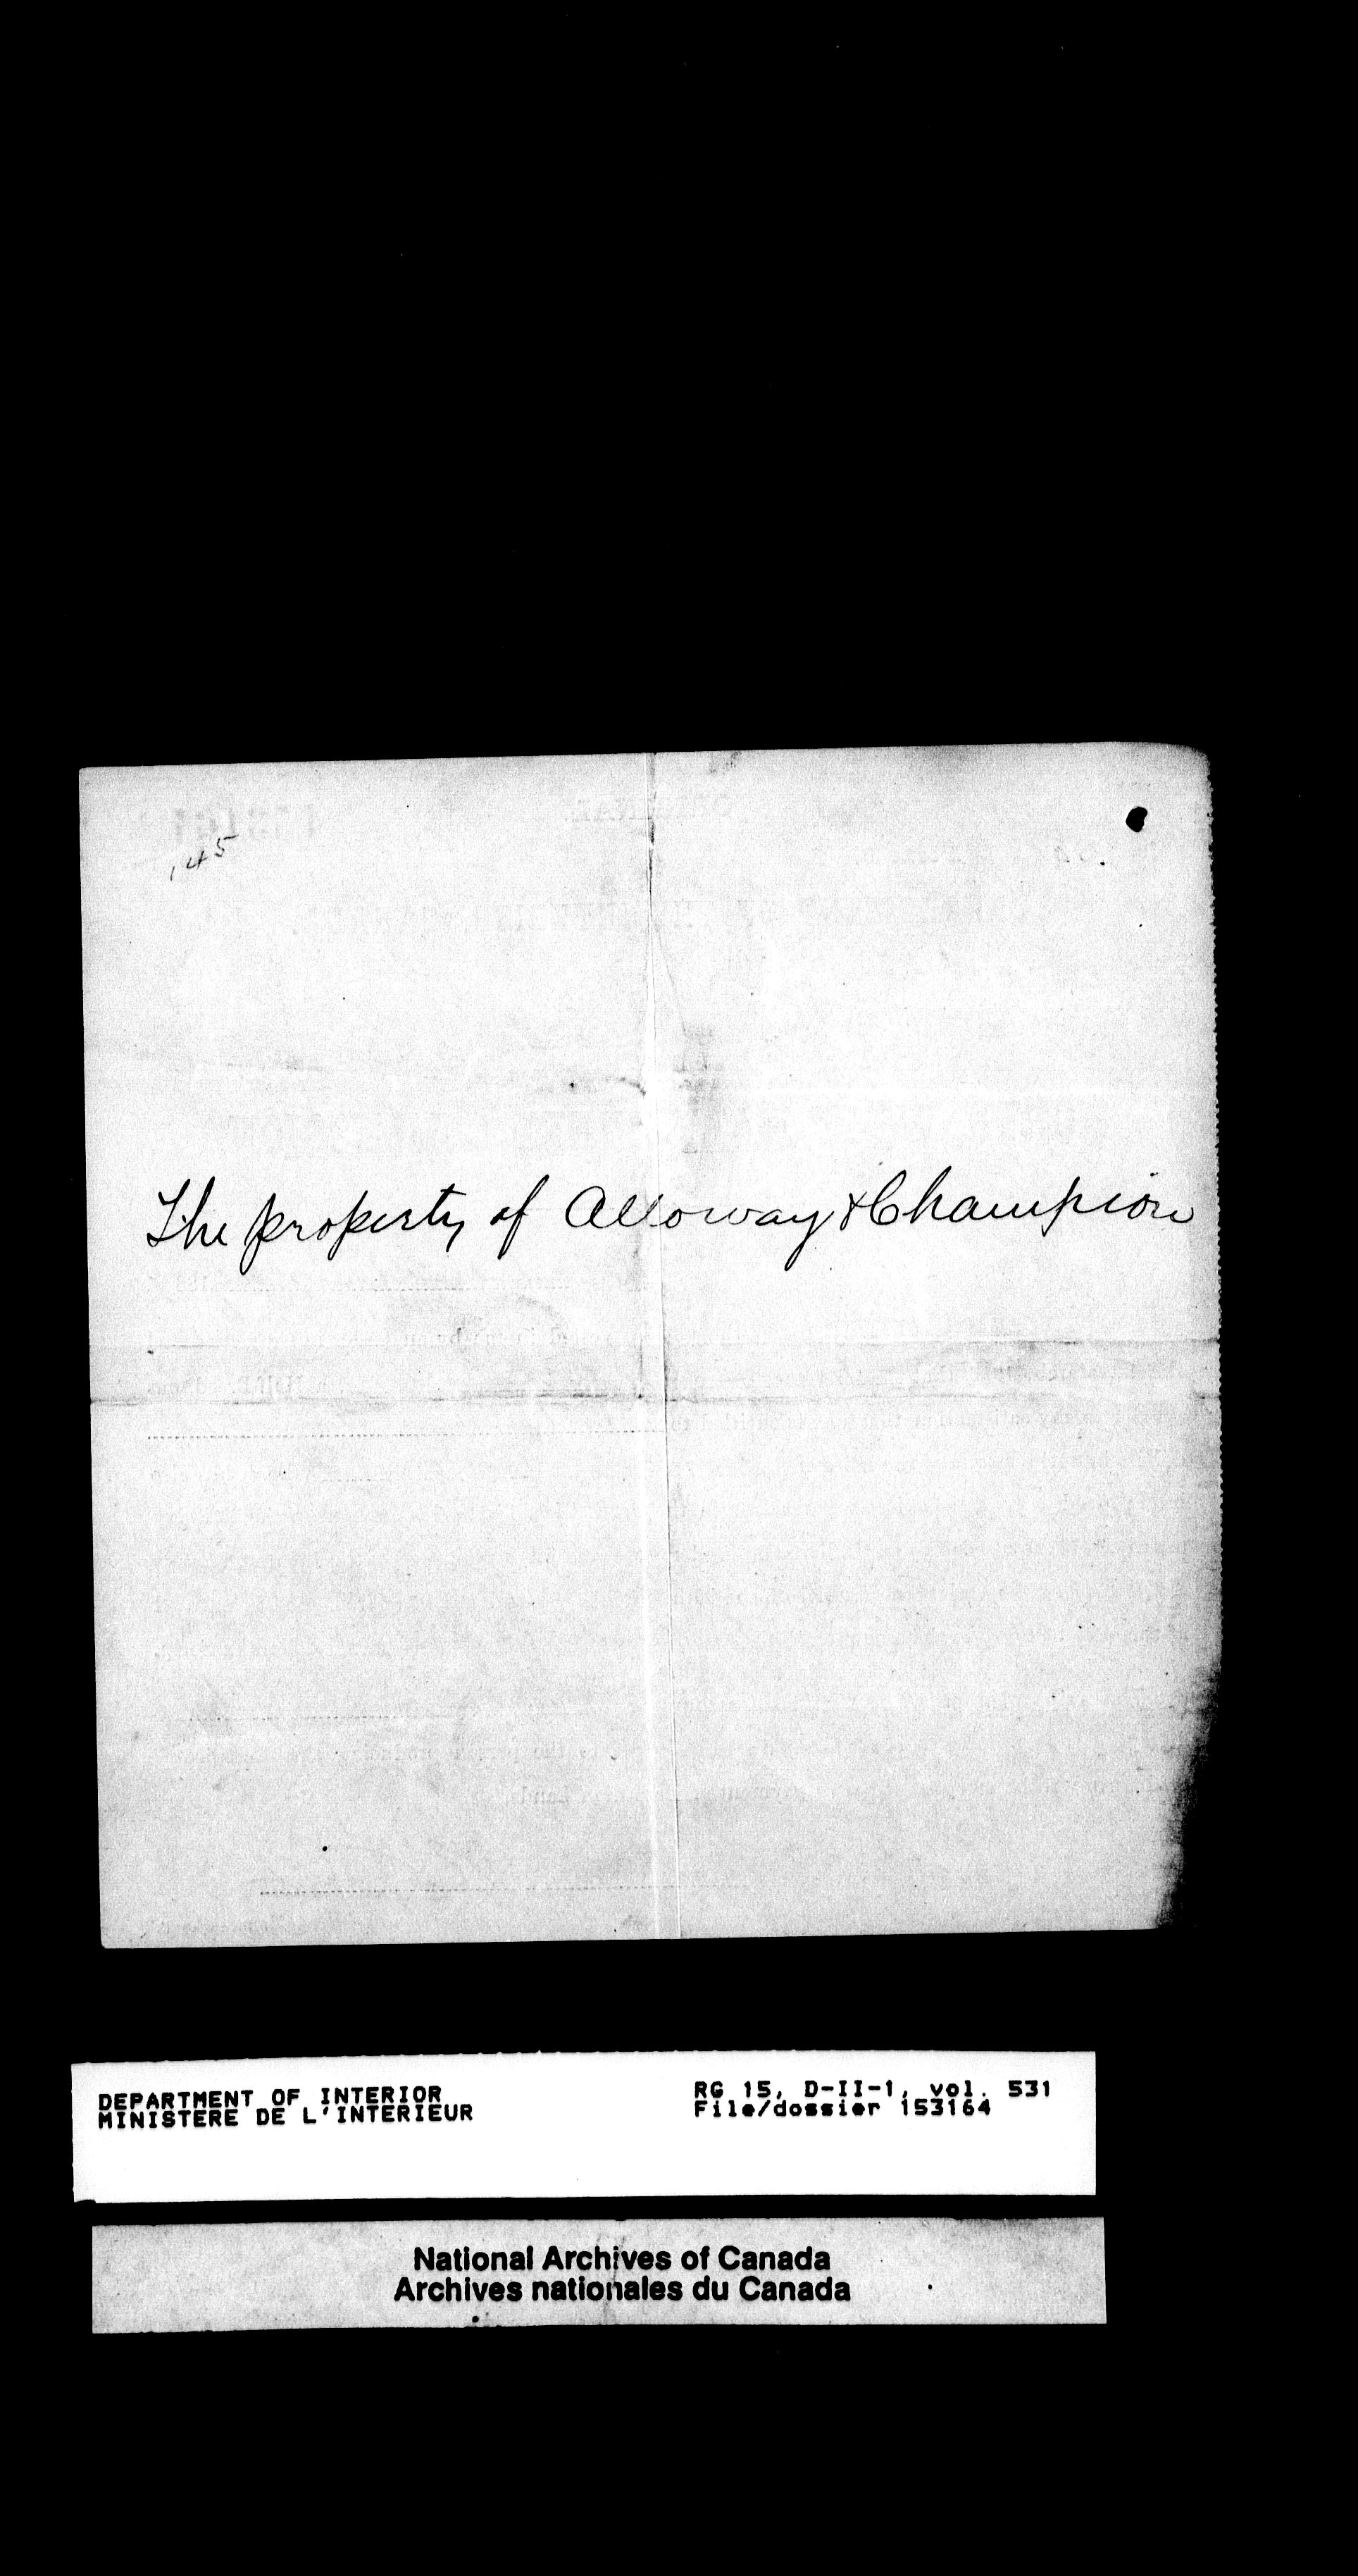 145
The property of Alloway & Champion
DEPARTMENT OF INTERIOR
MINISTERE DE L'INTERIEUR
RG 15, D-II-1, vol. 531
File/dossier 153164
National Archives of Canada
Archives nationales du Canada